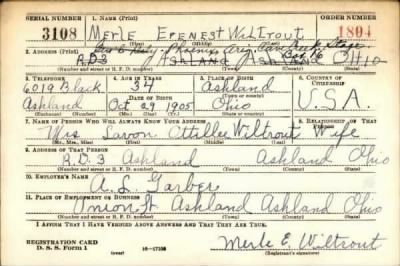 SERIAL NUMBER 1. NAME (Print) ORDER NUMBER
3108 Merle Erenest Wiltrout 1804
(First) (Middle) (Last)
Phoenix Ariz.
2. ADDRESS (Print)
R.D.3 Ashland Ashland Ohio
(Number and street or R. F. D. number) (Town) (County) (State)
3. TELEPHONE 4. AGE IN YEARS 5. PLACE OF BIRTH 6. COUNTRY OF CITIZENSHIP
6019 Black 34 Ashland
DATE OF BIRTH (Town or county)
Ashland Oct 29 1905 Ohio U.S.A.
(Exchange) (Number) (Mo.) (Day) (Yr.) (State or country)
7. NAME OF PERSON WHO WILL ALWAYS KNOW YOUR ADDRESS 8. RELATIONSHIP OF THAT PERSON
Mrs Lavon Wiltrout Wife
(Mr., Mrs., Miss) (First) (Middle) (Last)
9. ADDRESS OF THAT PERSON
R.D. 3 Ashland Ashland Ohio
(Number and street or R. F. D. number) (Town) (County) (State)
10. EMPLOYER'S NAME
A. L. Garber
11. PLACE OF EMPLOYMENT OR BUSINESS
Union St. Ashland Ashland Ohio
(Number and street or R. F. D. number) (Town) (County) (State)
I AFFIRM THAT I HAVE VERIFIED ABOVE ANSWERS AND THAT THEY ARE TRUE.
REGISTRATION CARD
D. S. S. Form 1 (over) 16-17105 Merle E. Wiltrout
(Registrant's signature)